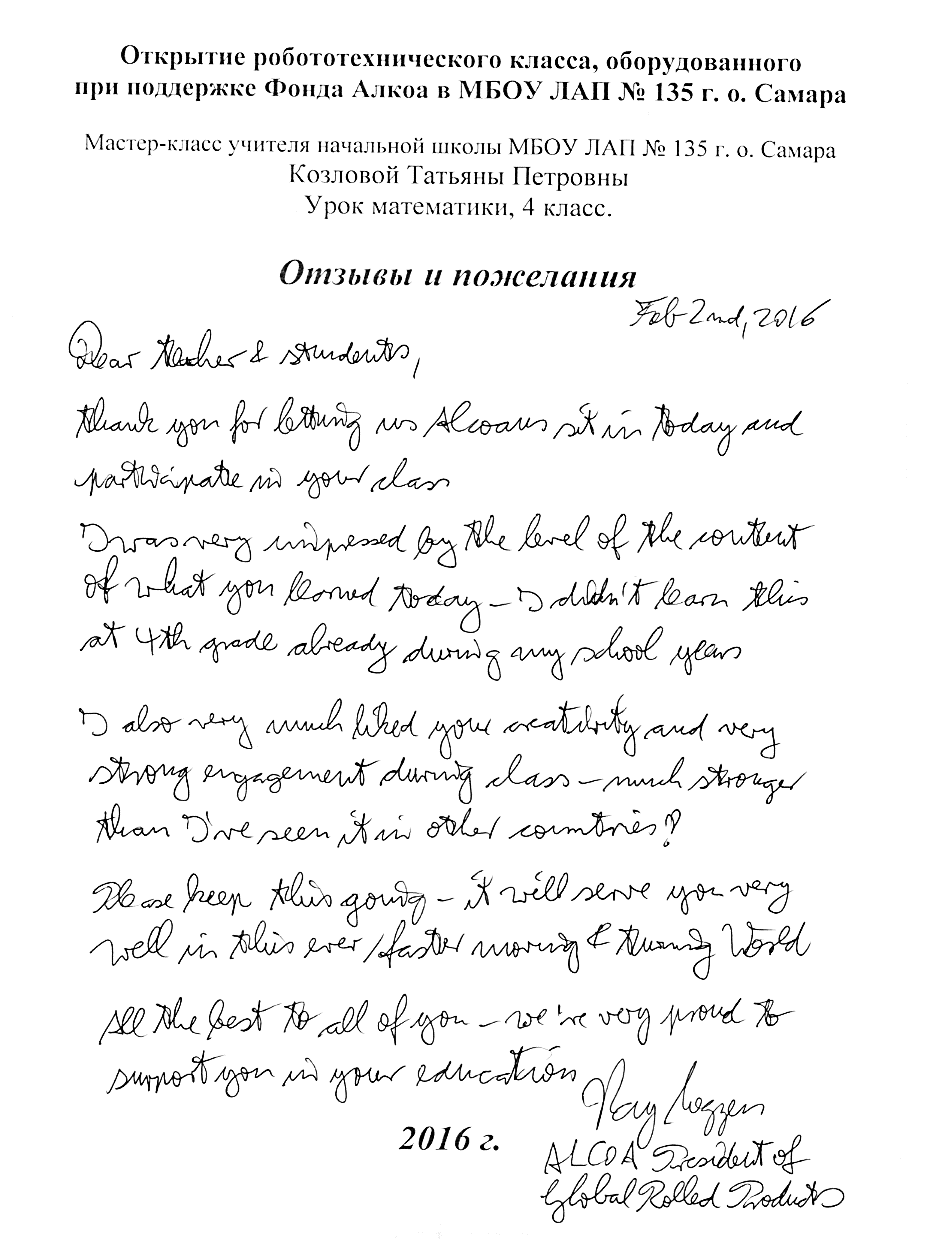 Открытие робототехнического класса, оборудованного
при поддержке Фонда Алкоа в МБОУ ЛАП № 135 г. о. Самара
Мастер-класс учителя начальной школы МБОУ ЛАП № 135 г. о. Самара
Козловой Татьяны Петровны
Урок математики, 4 класс.
Отзывы и пожелания
Feb 2nd, 2016
Dear teacher & students,
thank you for letting us Alcoans sit in today and
participate in your class
I was very impressed by the level of the content
of what you learned today – I didn't learn this
at 4th grade already during my school years
I also very much liked your creativity and very
strong engagement during class – much stronger
than I've seen it in other countries!
Please keep this going – it will serve you very
well in this ever/faster moving & turning World
All the best to all of you – we're very proud to
support you in your education
Kay
2016 г.
ALCOA President of
Global Rolled Products